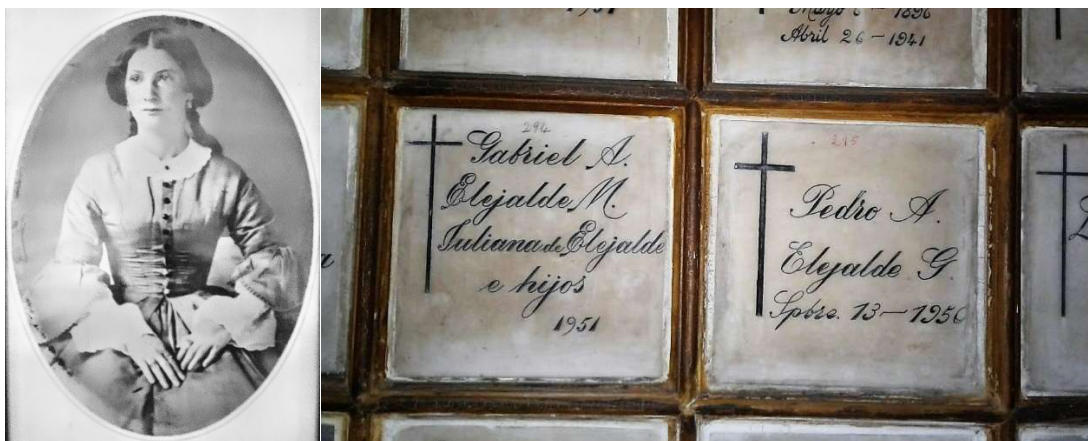 Mayo 6 - 1896
Abril 26 - 1941
294
Gabriel A.
Elejalde M.
Juliana de Elejalde
e hijos
1951
295
Pedro A.
Elejalde G.
Spbre. 13 - 1956